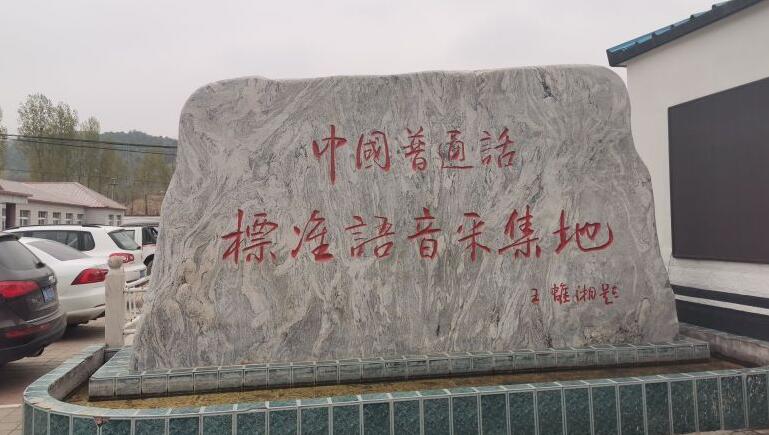 中國普通話
標准語音采集地
王離湘題